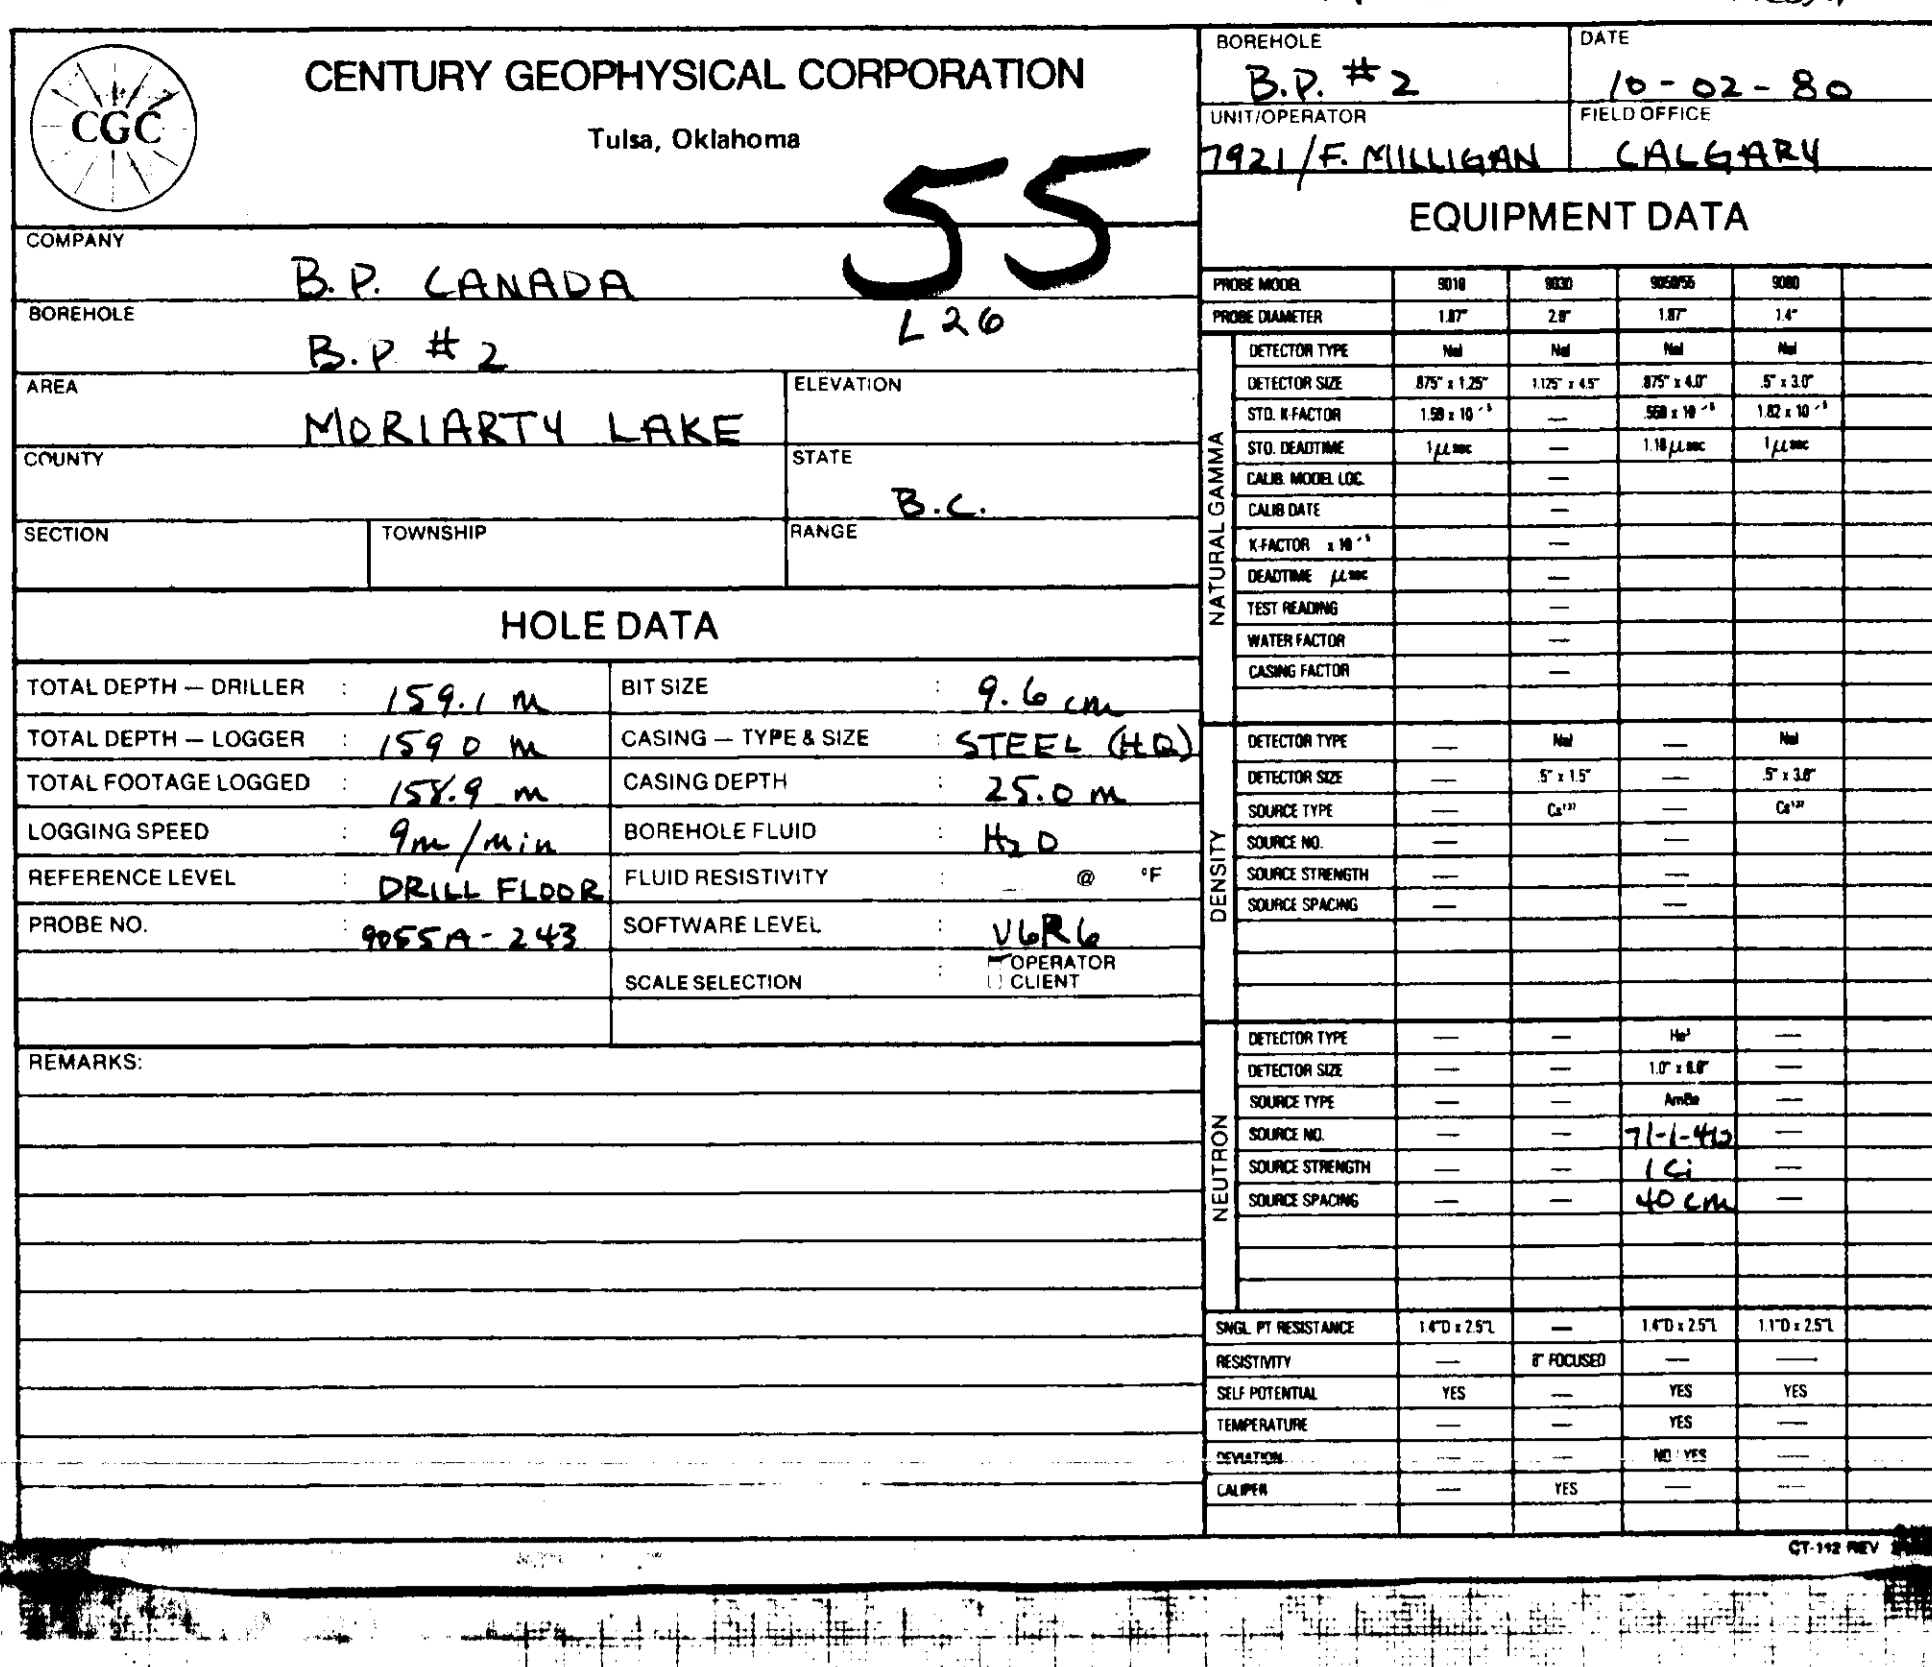 CGC
CENTURY GEOPHYSICAL CORPORATION
Tulsa, Oklahoma
55
L 26
COMPANY
B.P. CANADA
BOREHOLE
B.P #2
AREA
MORIARTY LAKE
ELEVATION
COUNTY
STATE
B.C.
SECTION TOWNSHIP RANGE
HOLE DATA
TOTAL DEPTH — DRILLER : 159.1 m BIT SIZE : 9.6 cm
TOTAL DEPTH — LOGGER : 159 0 m CASING — TYPE & SIZE : STEEL (HQ)
TOTAL FOOTAGE LOGGED : 158.9 m CASING DEPTH : 25.0 m
LOGGING SPEED : 9m/min BOREHOLE FLUID : H2O
REFERENCE LEVEL : DRILL FLOOR FLUID RESISTIVITY : — @ °F
PROBE NO. : 9055A-243 SOFTWARE LEVEL : V6R6
SCALE SELECTION : OPERATOR
CLIENT
REMARKS:
BOREHOLE
B.P. #2
DATE
10-02-80
UNIT/OPERATOR
7921/F. MILLIGAN
FIELD OFFICE
CALGARY
EQUIPMENT DATA
PROBE MODEL 9018 9030 9050/55 9080
PROBE DIAMETER 1.87" 2.8" 1.87" 1.4"
NATURAL GAMMA
DETECTOR TYPE NaI NaI NaI NaI
DETECTOR SIZE .875" x 1.25" 1.125" x 4.5" .875" x 4.0" .5" x 3.0"
STD. K-FACTOR 1.59 x 10⁻⁵ — x 10⁻⁵ 1.82 x 10⁻⁵
STD. DEADTIME 1 μsec — 1.18 μsec 1 μsec
CALIB. MODEL LOC. —
CALIB DATE —
K-FACTOR x 10⁻⁵ —
DEADTIME μsec —
TEST READING —
WATER FACTOR —
CASING FACTOR —
DENSITY
DETECTOR TYPE — NaI — NaI
DETECTOR SIZE — .5" x 1.5" — .5" x 3.0"
SOURCE TYPE — Cs¹³⁷ — Cs¹³⁷
SOURCE NO. — —
SOURCE STRENGTH — —
SOURCE SPACING — —
NEUTRON
DETECTOR TYPE — — He³ —
DETECTOR SIZE — — 1.0" x —
SOURCE TYPE — — AmBe —
SOURCE NO. — — 71-1-412 —
SOURCE STRENGTH — — 1 Ci —
SOURCE SPACING — — 40 cm —
SNGL. PT RESISTANCE 1.4"D x 2.5"L — 1.4"D x 2.5"L 1.1"D x 2.5"L
RESISTIVITY — 8" FOCUSED — —
SELF POTENTIAL YES — YES YES
TEMPERATURE — — YES —
DEVIATION — — NO / YES —
CALIPER — YES — —
CT-112 REV